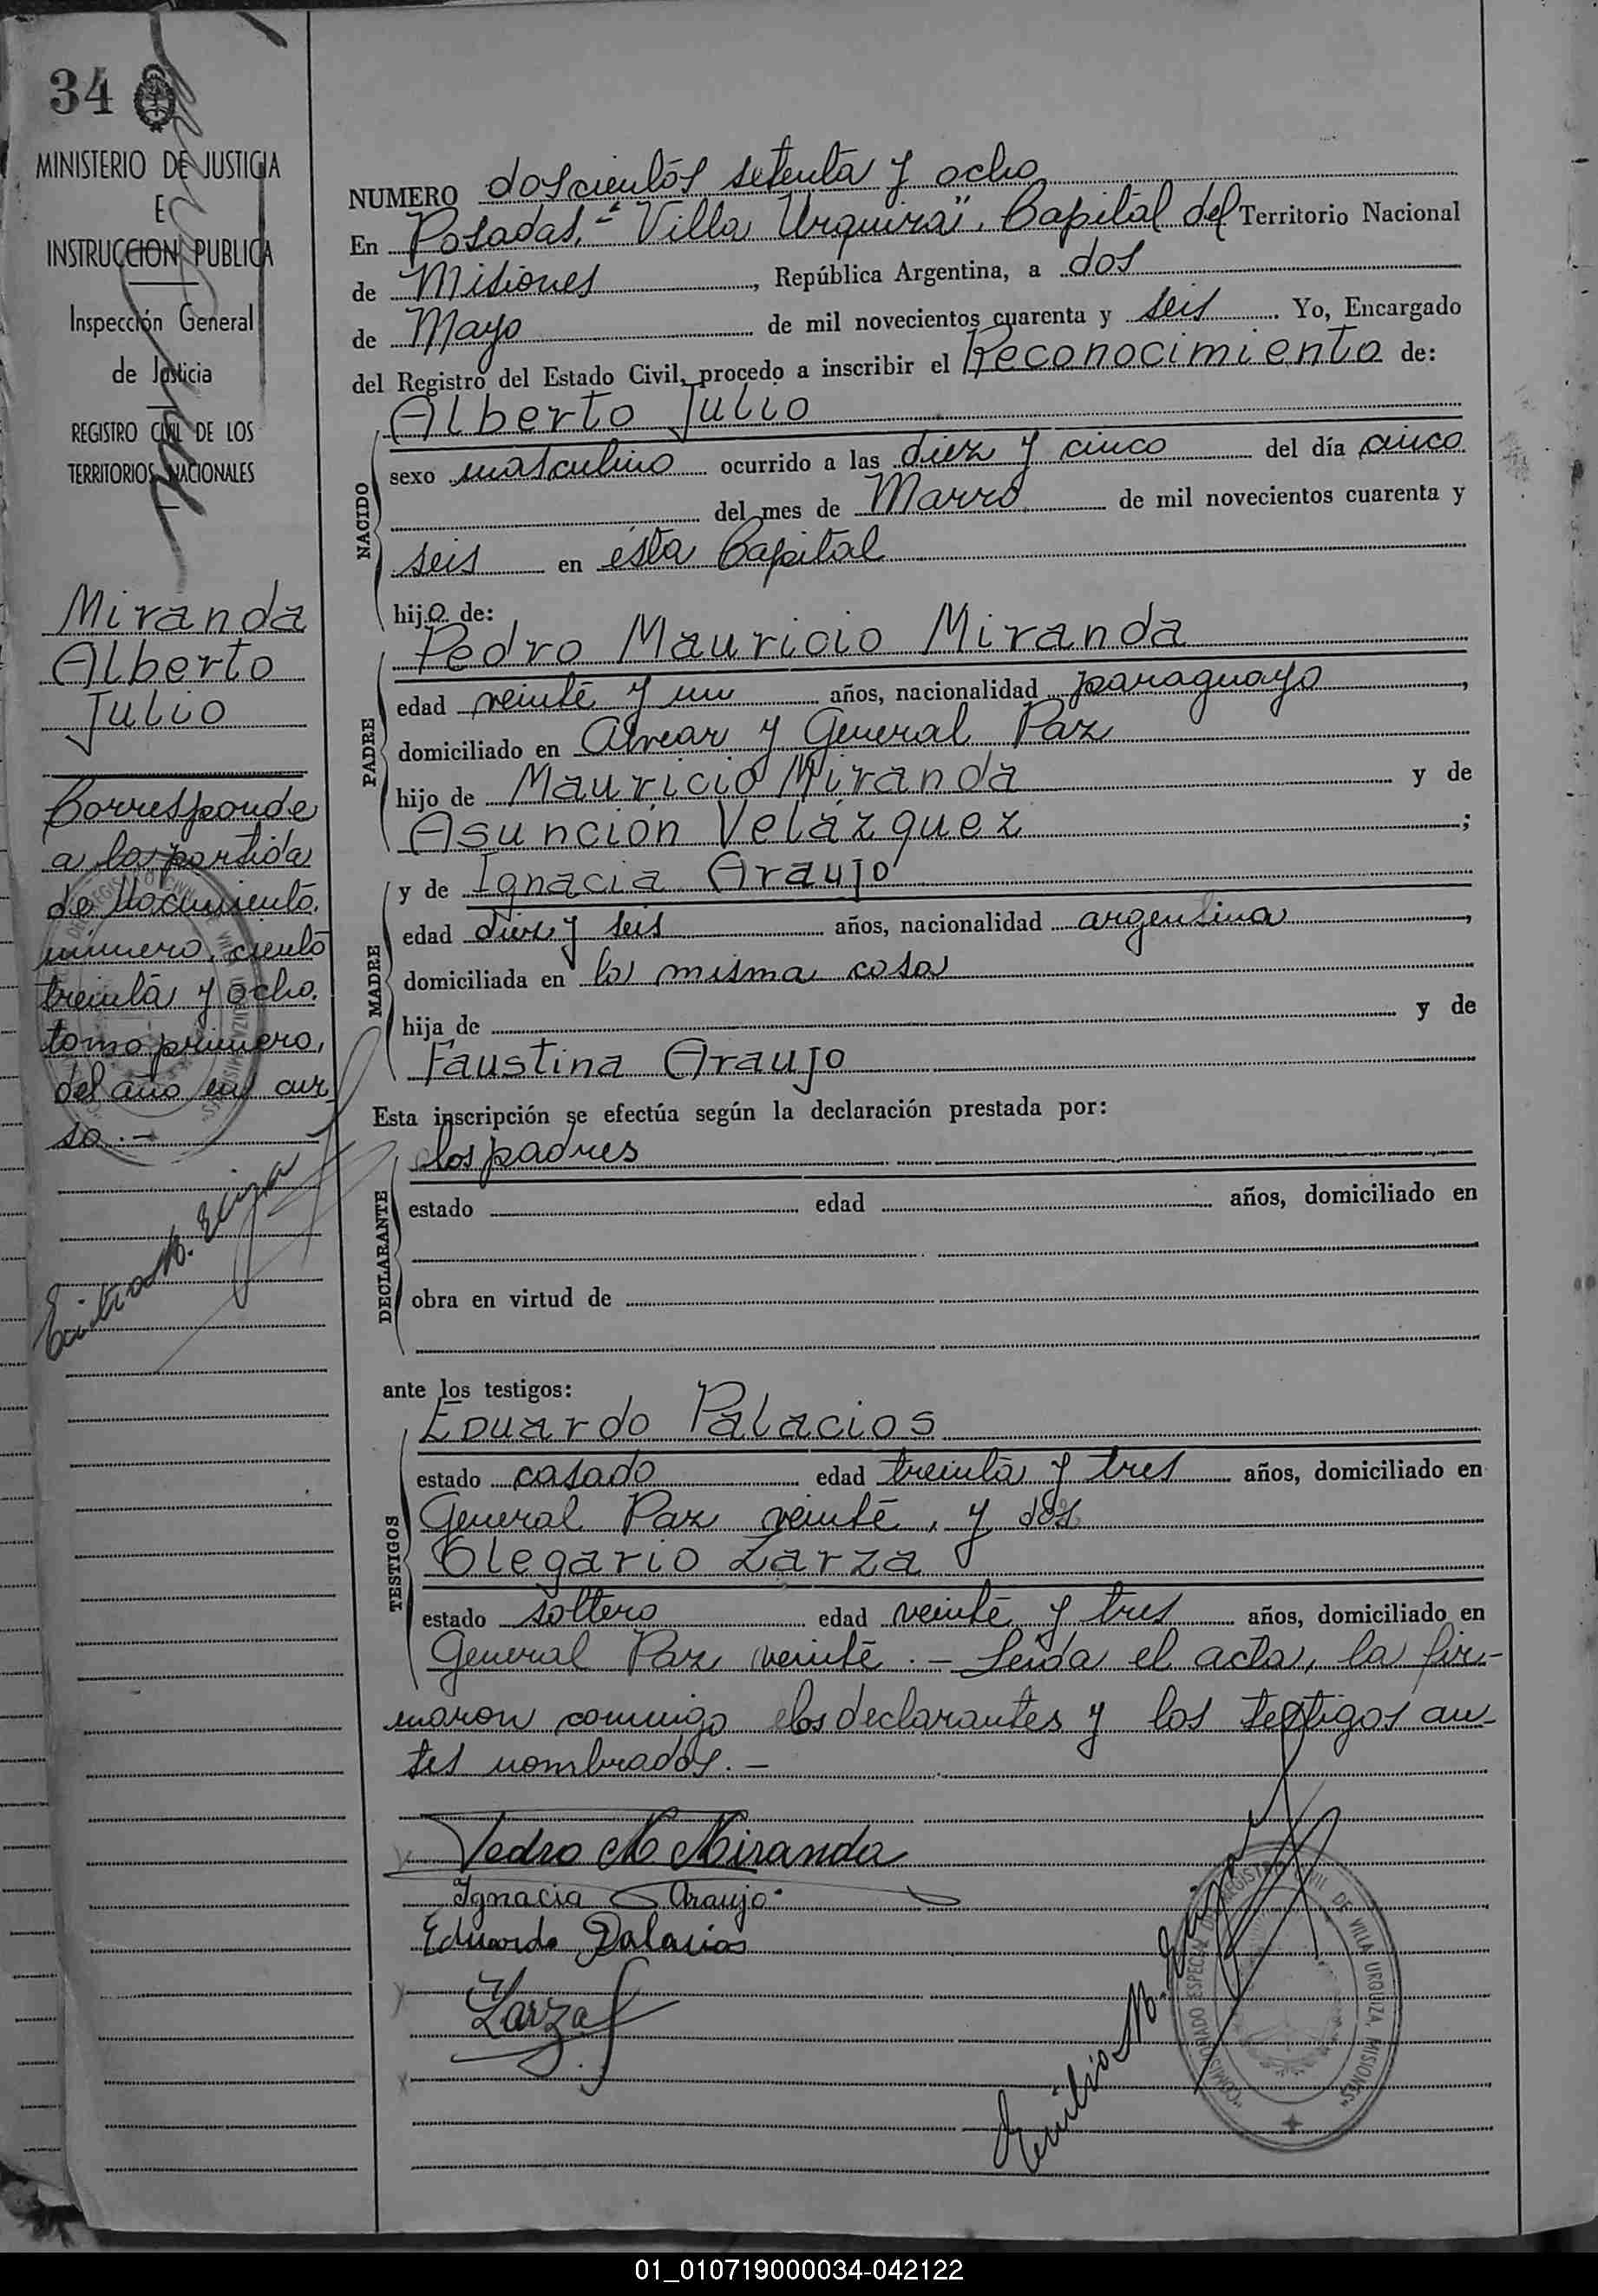 34
MINISTERIO DE JUSTICIA
E
INSTRUCCION PUBLICA
Inspección General
de Justicia
REGISTRO CIVIL DE LOS
TERRITORIOS NACIONALES
Miranda
Alberto
Julio
Corresponde
a la partida
de Nacimiento,
número, ciento
treinta y ocho,
tomo primero,
del año en cur
so.-
NUMERO doscientos setenta y ocho
En Posadas,- "Villa Urquiza", Capital del Territorio Nacional
de Misiones, República Argentina, a dos
de Mayo de mil novecientos cuarenta y seis. Yo, Encargado
del Registro del Estado Civil, procedo a inscribir el Reconocimiento de:
Alberto Julio
NACIDO
sexo masculino ocurrido a las diez y cinco del día cinco
del mes de Marzo de mil novecientos cuarenta y
seis en ésta Capital
hijo de:
Pedro Mauricio Miranda
PADRE
edad veinte y un años, nacionalidad paraguayo,
domiciliado en Alvear y General Paz
hijo de Mauricio Miranda y de
Asunción Velázquez;
y de Ignacia Araujo
MADRE
edad diez y seis años, nacionalidad argentina,
domiciliada en la misma casa
hija de y de
Faustina Araujo
Esta inscripción se efectúa según la declaración prestada por:
los padres
DECLARANTE
estado edad años, domiciliado en
obra en virtud de
ante los testigos:
Eduardo Palacios
TESTIGOS
estado casado edad treinta y tres años, domiciliado en
General Paz veinte, y dos
Olegario Zarza
estado soltero edad veinte y tres años, domiciliado en
General Paz veinte.- Leída el acta, la fir-
maron conmigo los declarantes y los testigos an-
tes nombrados.-
Pedro M Miranda
Ignacia Araujo
Eduardo Palacios
Zarza
REGISTRO CIVIL DE VILLA URQUIZA, MISIONES
01_010719000034-042122